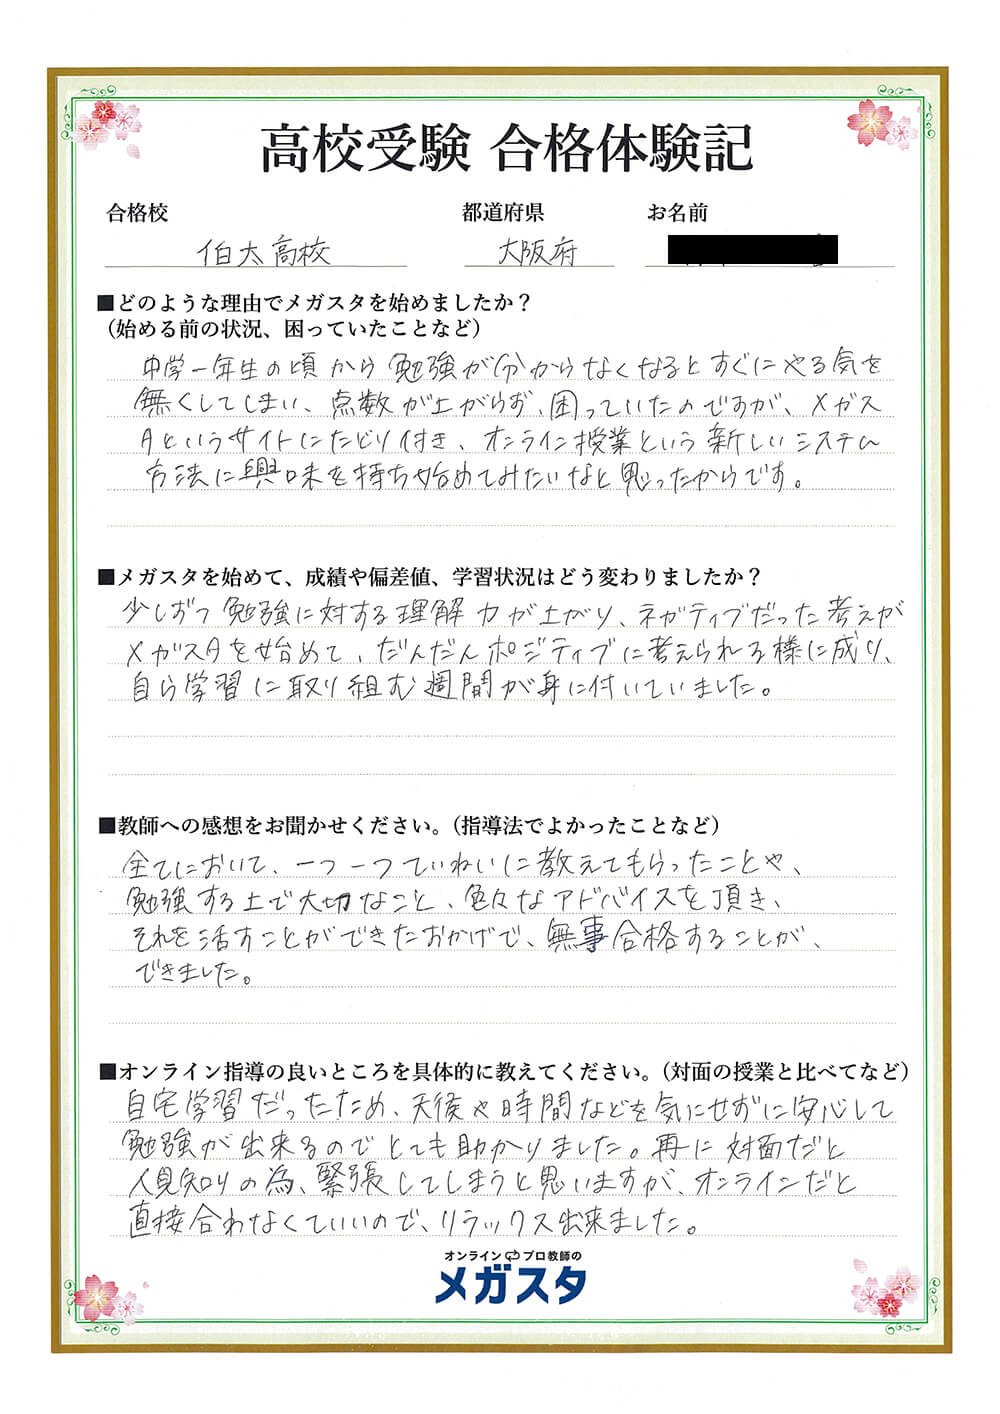 高校受験 合格体験記
合格校 都道府県 お名前
伯太高校 大阪府
■どのような理由でメガスタを始めましたか？
（始める前の状況、困っていたことなど）
中学一年生の頃から勉強が分からなくなるとすぐにやる気を
無くしてしまい、点数が上がらず、困っていたのですが、メガス
タというサイトにたどり付き、オンライン授業という新しいシステム
方法に興味を持ち始めてみたいなと思ったからです。
■メガスタを始めて、成績や偏差値、学習状況はどう変わりましたか？
少しずつ勉強に対する理解力が上がり、ネガティブだった考えが
メガスタを始めて、だんだんポジティブに考えられる様に成り、
自ら学習に取り組む週間が身に付いていました。
■教師への感想をお聞かせください。（指導法でよかったことなど）
全てにおいて、一つ一つていねいに教えてもらったことや、
勉強する上で大切なこと、色々なアドバイスを頂き、
それを活すことができたおかげで、無事合格することが、
できました。
■オンライン指導の良いところを具体的に教えてください。（対面の授業と比べてなど）
自宅学習だったため、天候や時間などを気にせずに安心して
勉強が出来るのでとても助かりました。再に対面だと
人見知りの為、緊張してしまうと思いますが、オンラインだと
直接合わなくていいので、リラックス出来ました。
オンライン プロ教師の
メガスタ